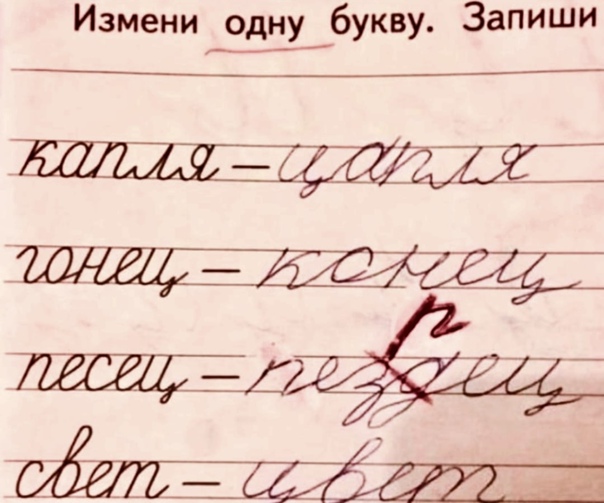 Измени одну букву. Запиши
капля – цапля
гонец – конец
р
песец – пездец
свет – цвет